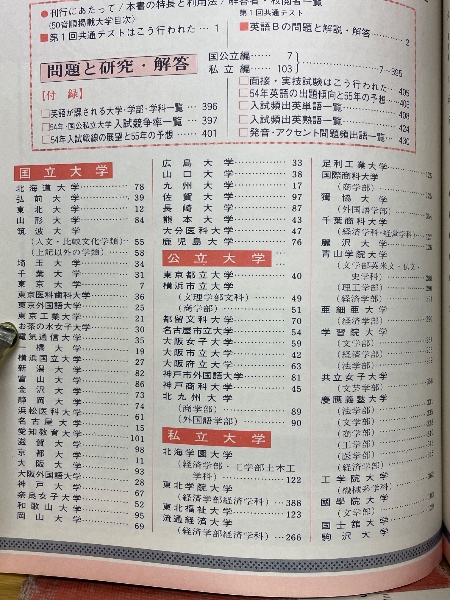 ●刊行にあたって/本書の特長と利用法/解答者・校閲者一覧
(50音順掲載大学目次)
■第1回共通テストはこう行われた… 1
第1回共通テスト
■英語Bの問題と解説・解答………2
問題と研究・解答
国公立編………… 7
私立編………… 103
7~395
【付録】
□英語が課される大学・学部・学科一覧… 396
□54年・国公私立大学入試競争率一覧… 397
□54年入試戦線の展望と55年の予想…… 401
□面接・実技試験はこう行われた…405
□54年英語の出題傾向と55年の予想…406
□入試頻出英単語一覧
□入試頻出英熟語一覧…424
□発音・アクセント問題頻出語一覧…430
国立大学
北海道大学………78
弘前大学………39
東北大学………12
山形大学………84
筑波大学
(人文・比較文化学類)…55
(上記以外の学類)…58
埼玉大学………34
千葉大学………31
東京大学………7
東京医科歯科大学………36
東京外国語大学………25
東京工業大学………21
お茶の水女子大学………30
電気通信大学………35
一橋大学………19
横浜国立大学………27
新潟大学………82
富山大学………86
金沢大学………73
静岡大学………74
浜松医科大学………61
名古屋大学………15
愛知教育大学………101
滋賀大学………98
京都大学………11
大阪大学………93
大阪外国語大学………28
神戸大学………67
奈良女子大学………52
和歌山大学………95
岡山大学………69
広島大学………33
山口大学………38
九州大学………17
佐賀大学………97
長崎大学………87
熊本大学………43
大分医科大学………47
鹿児島大学………76
公立大学
東京都立大学………40
横浜市立大学
(文理学部文科)………49
(商学部)………51
都留文科大学………70
名古屋市立大学………54
大阪女子大学………59
大阪市立大学………42
大阪府立大学………63
神戸市外国語大学………81
神戸商科大学………45
北九州大学
(商学部)………89
(外国語学部)………90
私立大学
北海学園大学
(経済学部・工学部土木工
学科)………122
東北学院大学
(経済学部経済学科)…386
東北福祉大学………123
流通経済大学
(経済学部経済学科)…266
足利工業大学
国際商科大学
(商学部)
獨協大学
(外国語学部)
千葉商科大学
(経済学科・経営学科)
麗沢大学
青山学院大学
(文学部英米文・仏文・
史学科)
(理工学部)
(経済学部)
亜細亜大学
(経済学部)
学習院大学
(文学部)
(経済学部)
(法学部)
共立女子大学
(文芸学部)
慶應義塾大学
(法学部)
(文学部)
(商学部)
(工学部)
(医学部)
(経済学部)
工学院大学
(機械系学科)
國學院大学
(文学部)
国士舘大学
駒沢大学